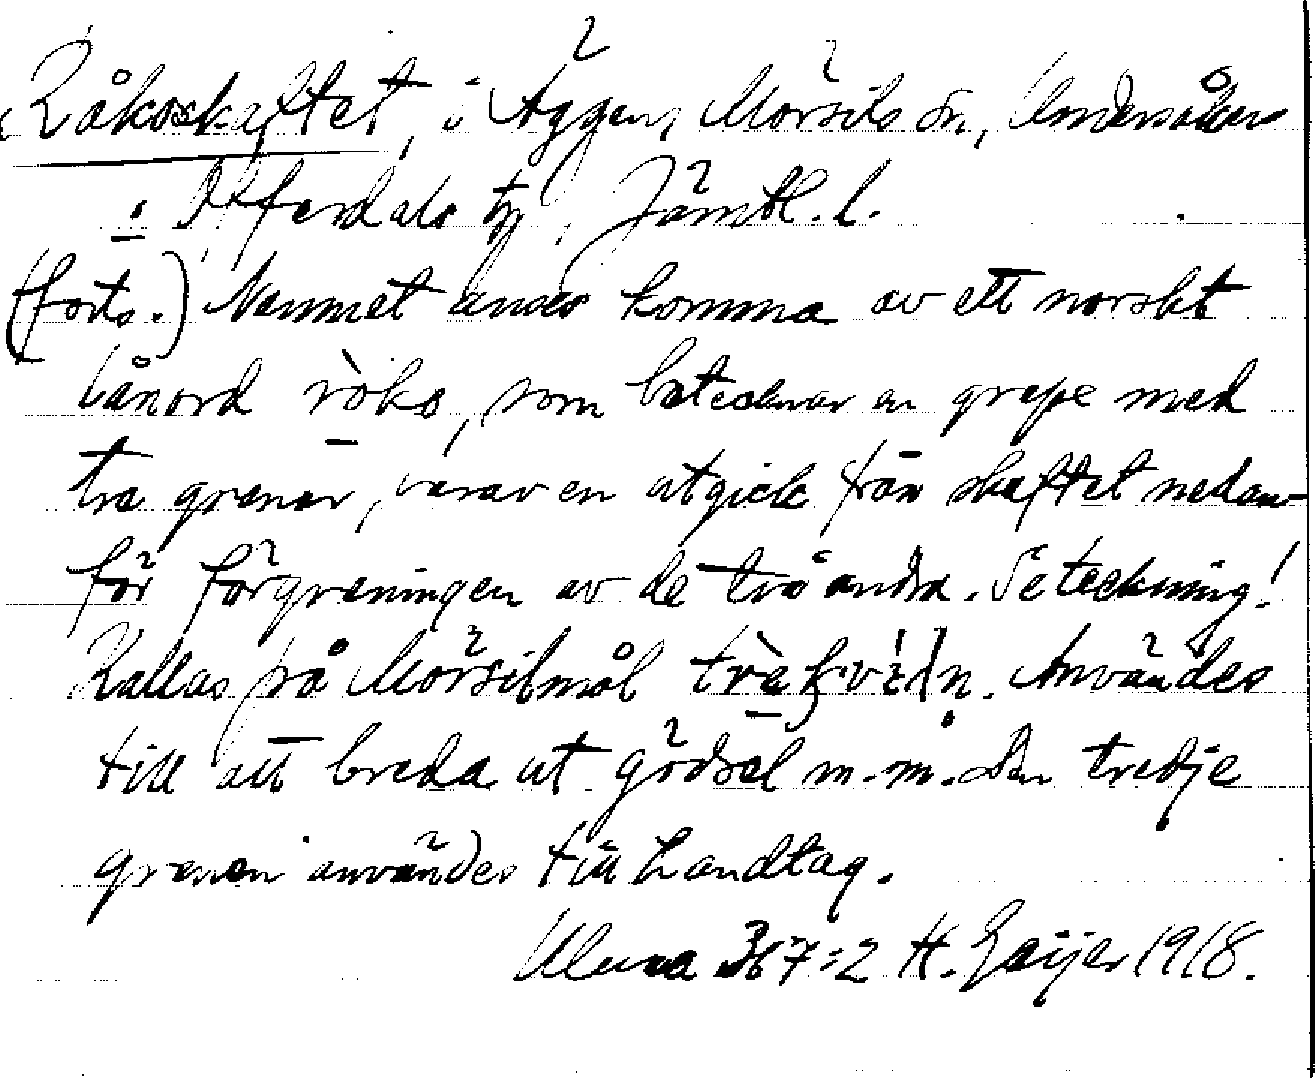 Råkoskaftet, i Äggen, Mörsils sn, Undersåkers
o. Offerdals tg, Jämtl. l.
(forts.) Namnet anses komma av ett norskt
lånord ròko, som betecknar en grepe med
tre grenar, varav en utgick från skaftet nedan-
för förgreningen av de två andra. Se teckning!
Kallas på Mörsilmål
. Användes
till att breda ut gödsel m.m. Den tredje
grenen användes till handtag.
Uluna 367:2 H. Geijer 1918.